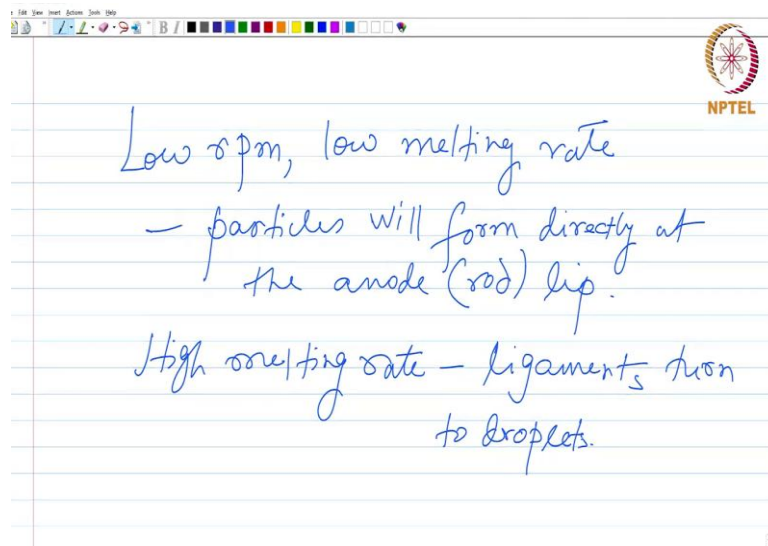 File Edit View Insert Actions Tools Help
B I
NPTEL
Low rpm, low melting rate
– particles will form directly at
the anode (rod) lip.
High melting rate – ligaments turn
to droplets.